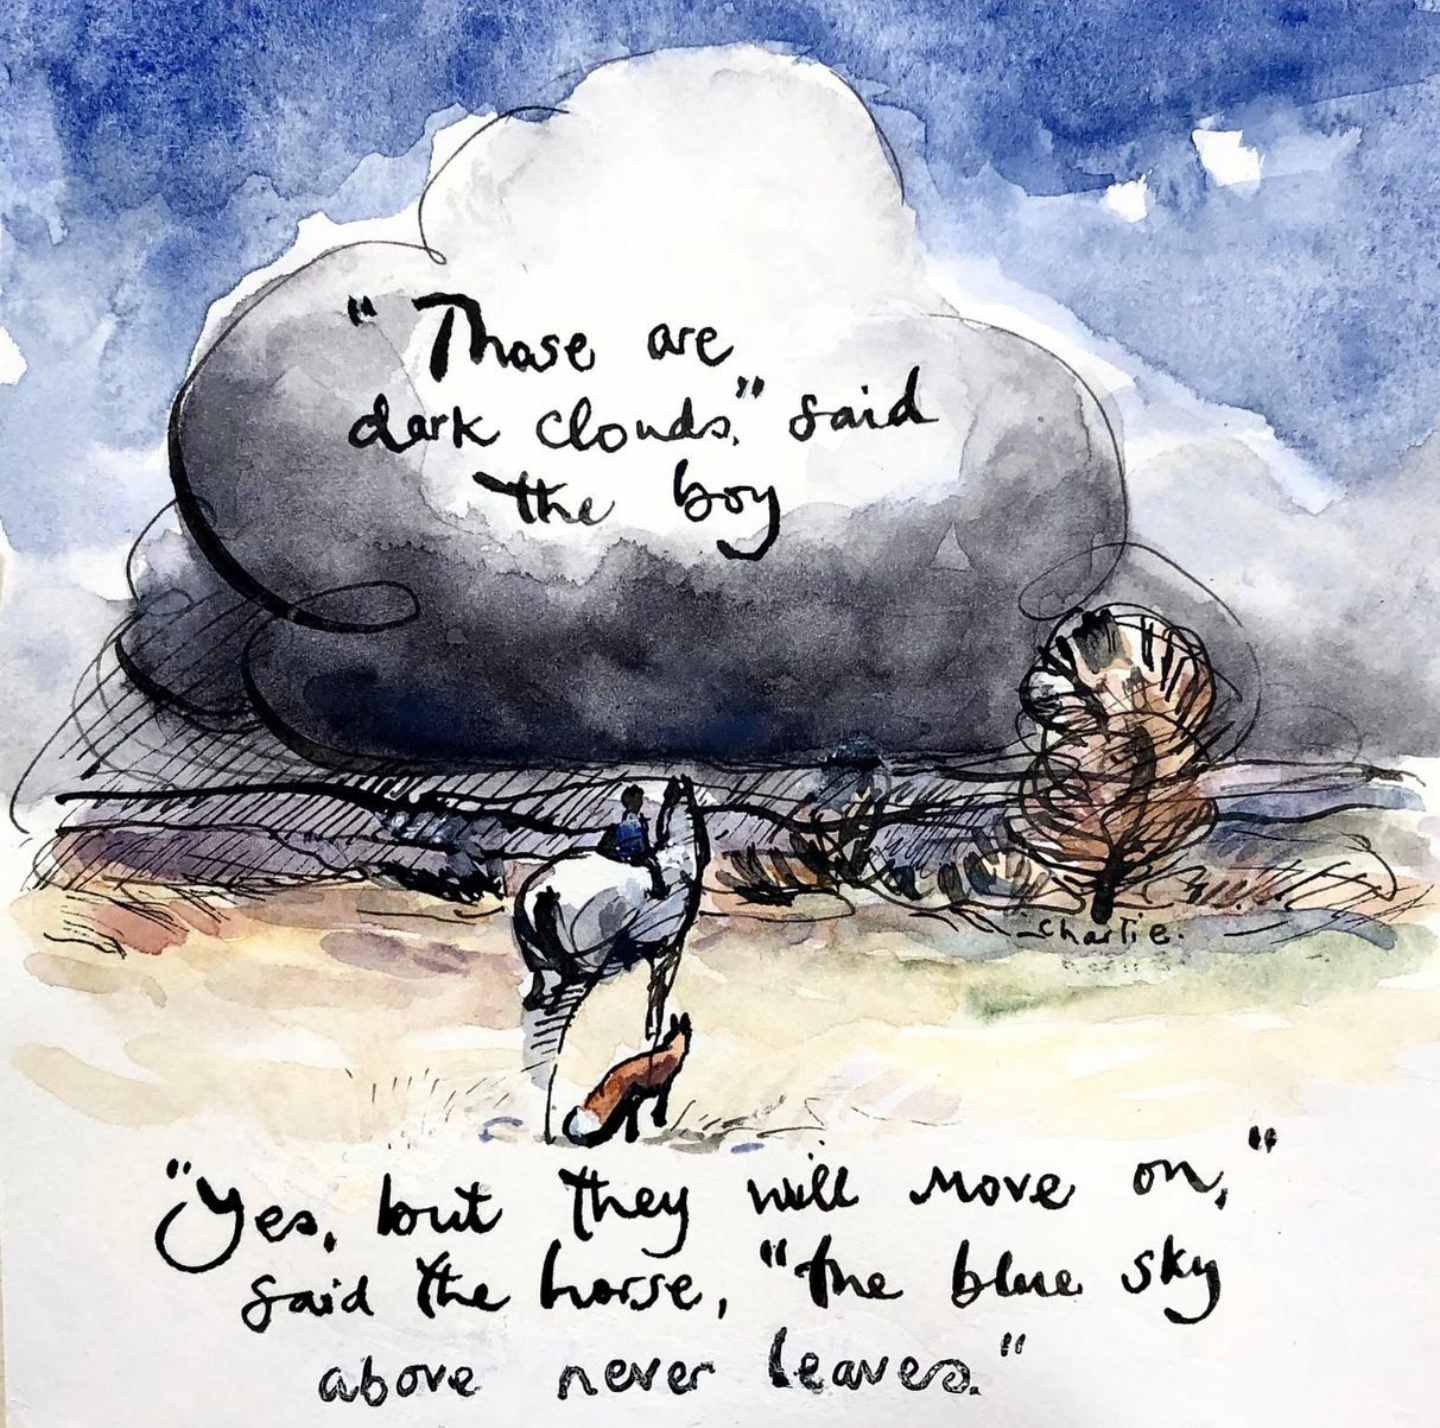 "Those are
dark clouds," said
the boy
Charlie.
"Yes, but they will move on,"
said the horse, "the blue sky
above never leaves."